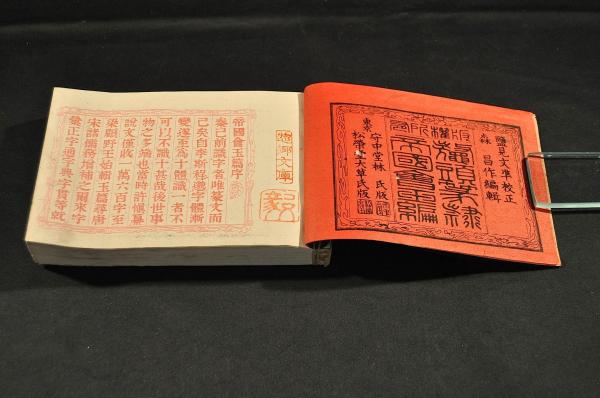 鹽見文準校正
森 昌作編輯
鼇頭篆隸
帝國會玉篇
版權所有
東京 守中堂林 氏版
松榮堂大草氏版
帝國會玉篇序
秦已前識字者唯篆文而
已矣自李斯程邈字體漸
變遂至爲十體識一者不
可以不識十甚哉後世事
物之多端也當時許慎纂
說文僅收一萬六百字至
梁顧野王始輯玉篇尋唐
宋諸儒務增補之爾來字
彙正字通字典字貫等就